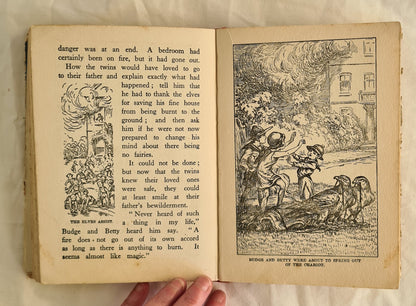 danger was at an end. A bedroom had
certainly been on fire, but it had gone out.
How the twins would have loved to go
to their father and explain exactly what had
happened; tell him that
he had to thank the elves
for saving his fine house
from being burnt to the
ground; and then ask
him if he were not now
prepared to change his
mind about there being
no fairies.
It could not be done;
but now that the twins
knew their loved ones
were safe, they could
at least smile at their
father's bewilderment.
THE ELVES ABOUT.
"Never heard of such
a thing in my life,"
Budge and Betty heard him say. "A
fire does not go out of its own accord
as long as there is anything to burn. It
seems almost like magic."
BUDGE AND BETTY WERE ABOUT TO SPRING OUT
OF THE CHARIOT.